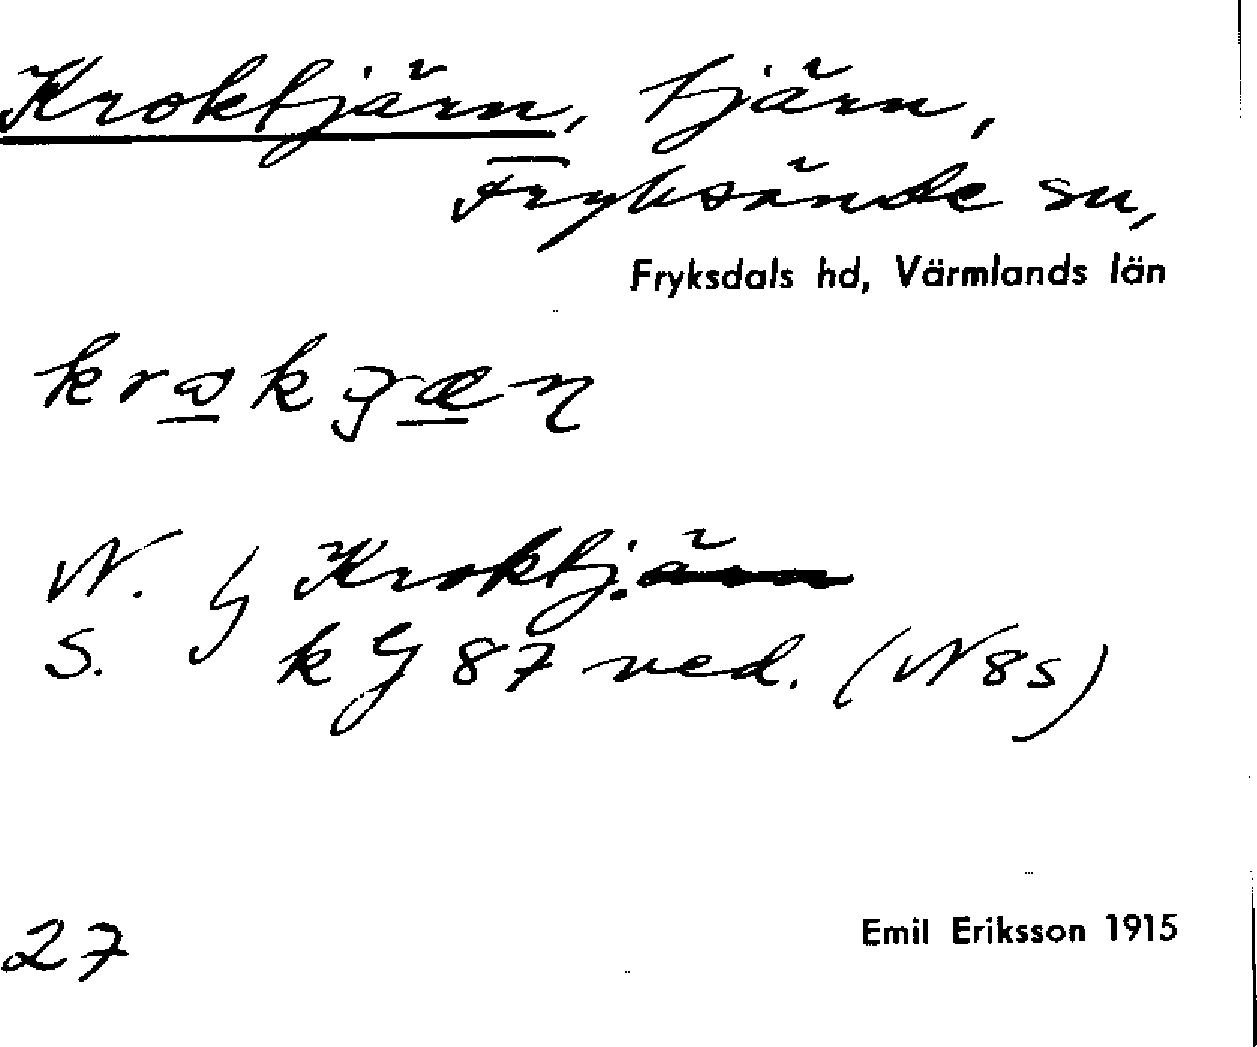 Kroktjärn, tjärn,
Fryksände sn,
Fryksdals hd, Värmlands län
N. Kroktj.
S. k 87 ned. (N 8 s)
27
Emil Eriksson 1915